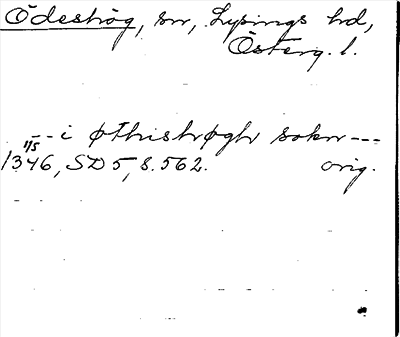 Ödeshög, sn, Lysings hd,
Österg. l.
--- i øthishøghr sokn ---
1346, 1/5 SD 5, s. 562. orig.